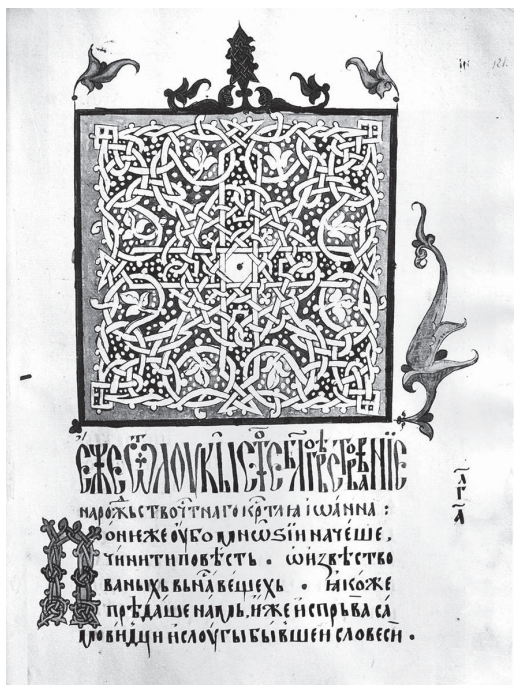 121.
ЕЖЕ Ѿ ЛОУКЫ С҃ТЕ БЛ҃ГОВѢСТВОВАНЇЕ
на рожьство чⷭ҇тнаго крⷭ҇тлꙗ іѡанна :
Понеже оубо мнѡѕїи начеше,
чинити повѣсть · ѡ извѣство
ваныхь вь на вещехь · ꙗкоже
прѣдаше намь, иже испрьва са
мовидци и слоугы бывшеи словеси ·